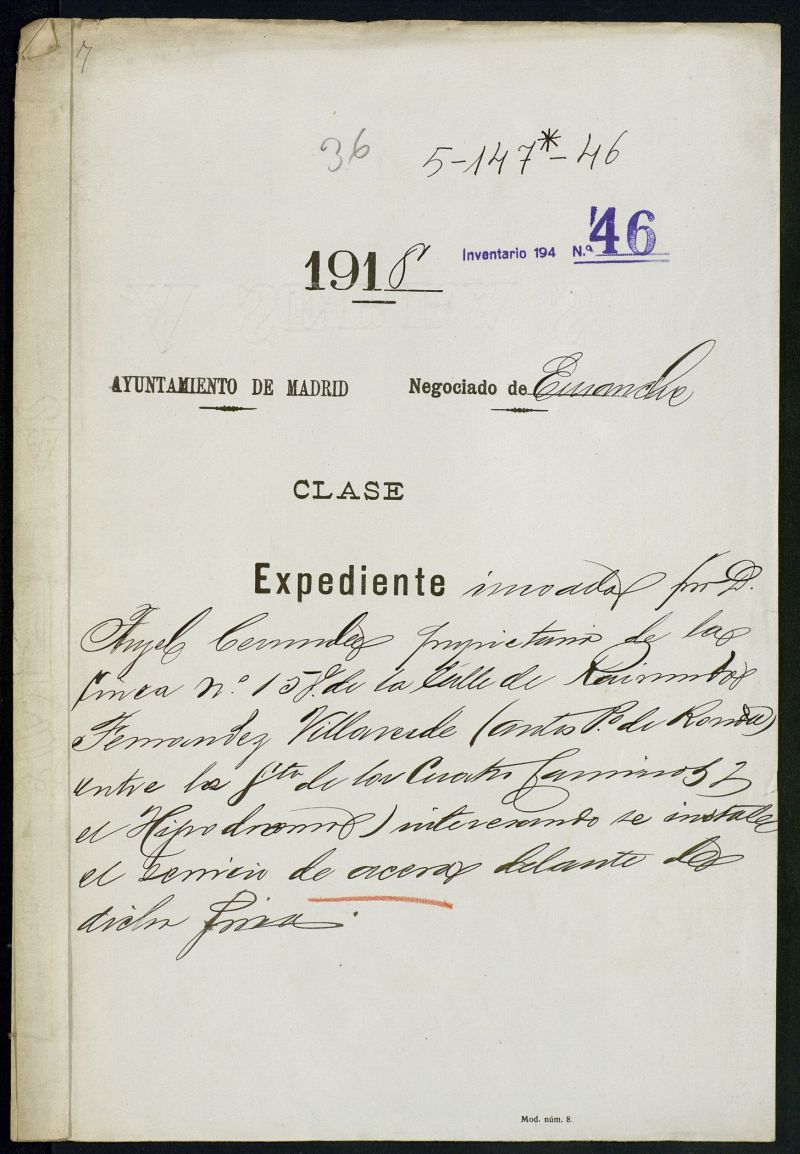 7
36
5-147*-46
1918
Inventario 194 N.º 46
AYUNTAMIENTO DE MADRID Negociado de Ensanche
CLASE
Expediente incoado por D.
Angel propietario de la
finca n.º 15 de la Calle de Raimundo
Fernandez Villaverde (antes P.º de Ronda
entre la Gta de los Cuatro Caminos y
el Hipodromo) interesando se instale
el servicio de acera delante de
dicha finca.
Mod. núm. 8.